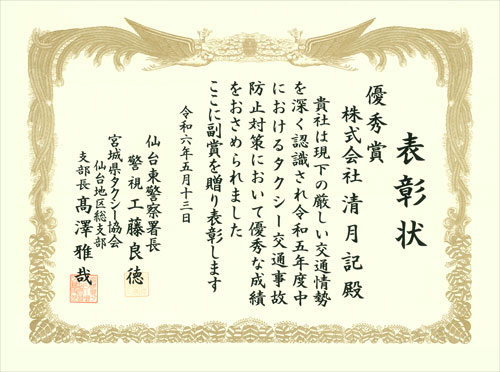 表彰状
優秀賞
株式会社 清月記 殿
貴社は現下の厳しい交通情勢
を深く認識され令和五年度中
におけるタクシー交通事故
防止対策において優秀な成績
をおさめられました
ここに副賞を贈り表彰します
令和六年五月十三日
仙台東警察署長
警視 工藤良徳
宮城県タクシー協会
仙台地区総支部
支部長 髙澤雅哉